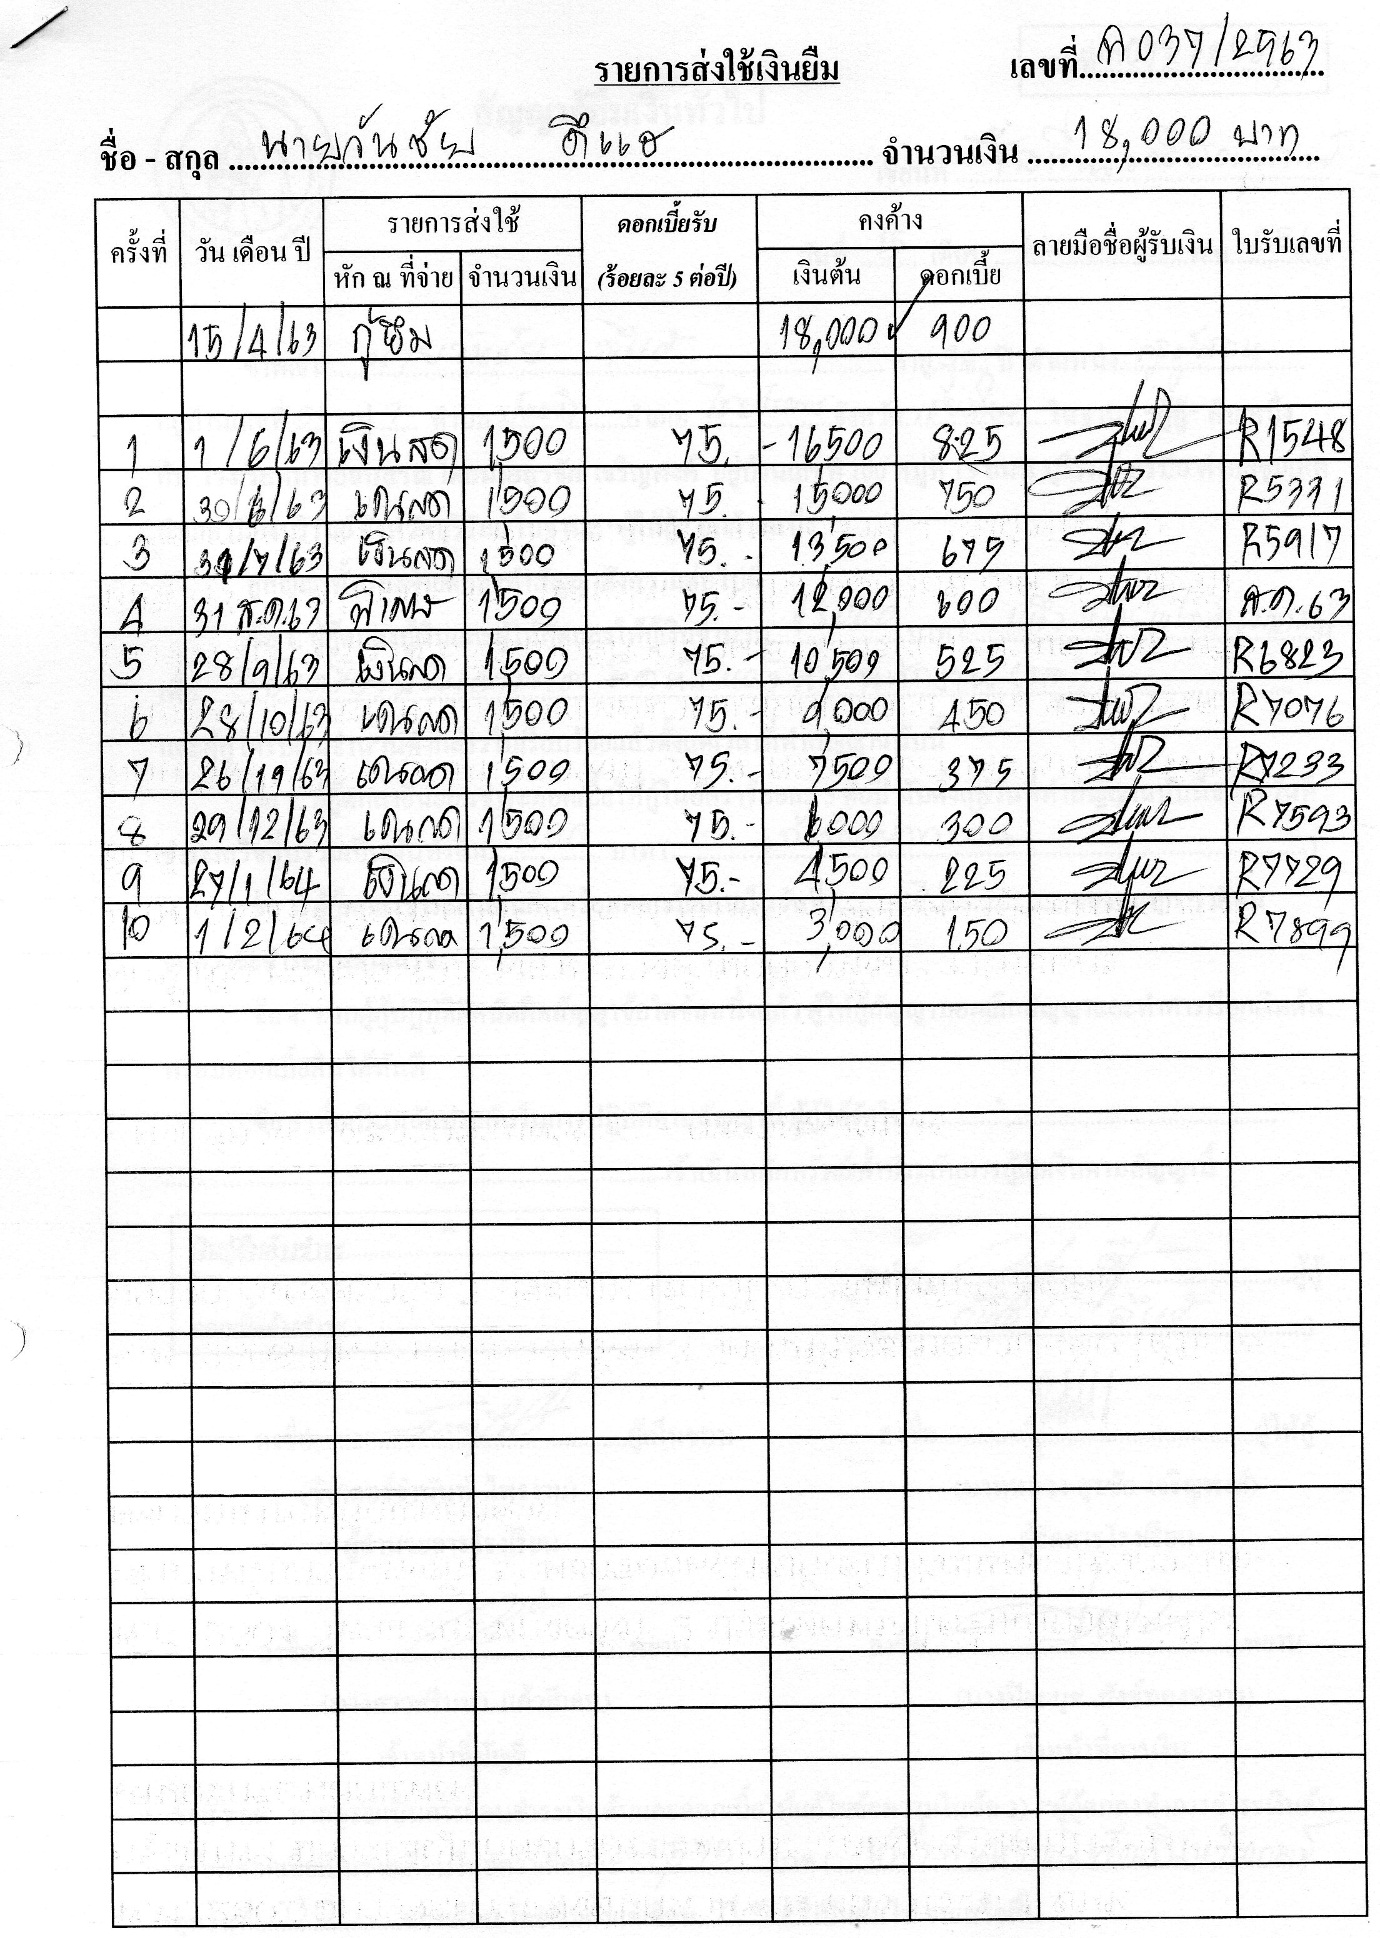 รายการส่งใช้เงินยืม
เลขที่ ค 037/2563
ชื่อ - สกุล นายวันชัย จำนวนเงิน 18,000 บาท
ครั้งที่ วัน เดือน ปี รายการส่งใช้ ดอกเบี้ยรับ คงค้าง ลายมือชื่อผู้รับเงิน ใบรับเลขที่
หัก ณ ที่จ่าย จำนวนเงิน (ร้อยละ 5 ต่อปี) เงินต้น ดอกเบี้ย
15/4/63 กู้ยืม 18,000 900
1 1/6/63 เงินสด 1500 75.- 16500 825 R1548
2 30/6/63 เงินสด 1500 75.- 15000 750 R5331
3 31/7/63 เงินสด 1500 75.- 13,500 675 R5917
4 31 ส.ค.63 1500 75.- 12,000 600 ส.ค.63
5 28/9/63 เงินสด 1500 75.- 10,500 525 R6823
6 28/10/63 เงินสด 1500 75.- 9,000 450 R7076
7 26/11/63 เงินสด 1500 75.- 7500 375 R7233
8 29/12/63 เงินสด 1500 75.- 6000 300 R7593
9 27/1/64 เงินสด 1500 75.- 4,500 225 R7729
10 1/2/64 เงินสด 1,500 75.- 3,000 150 R7899